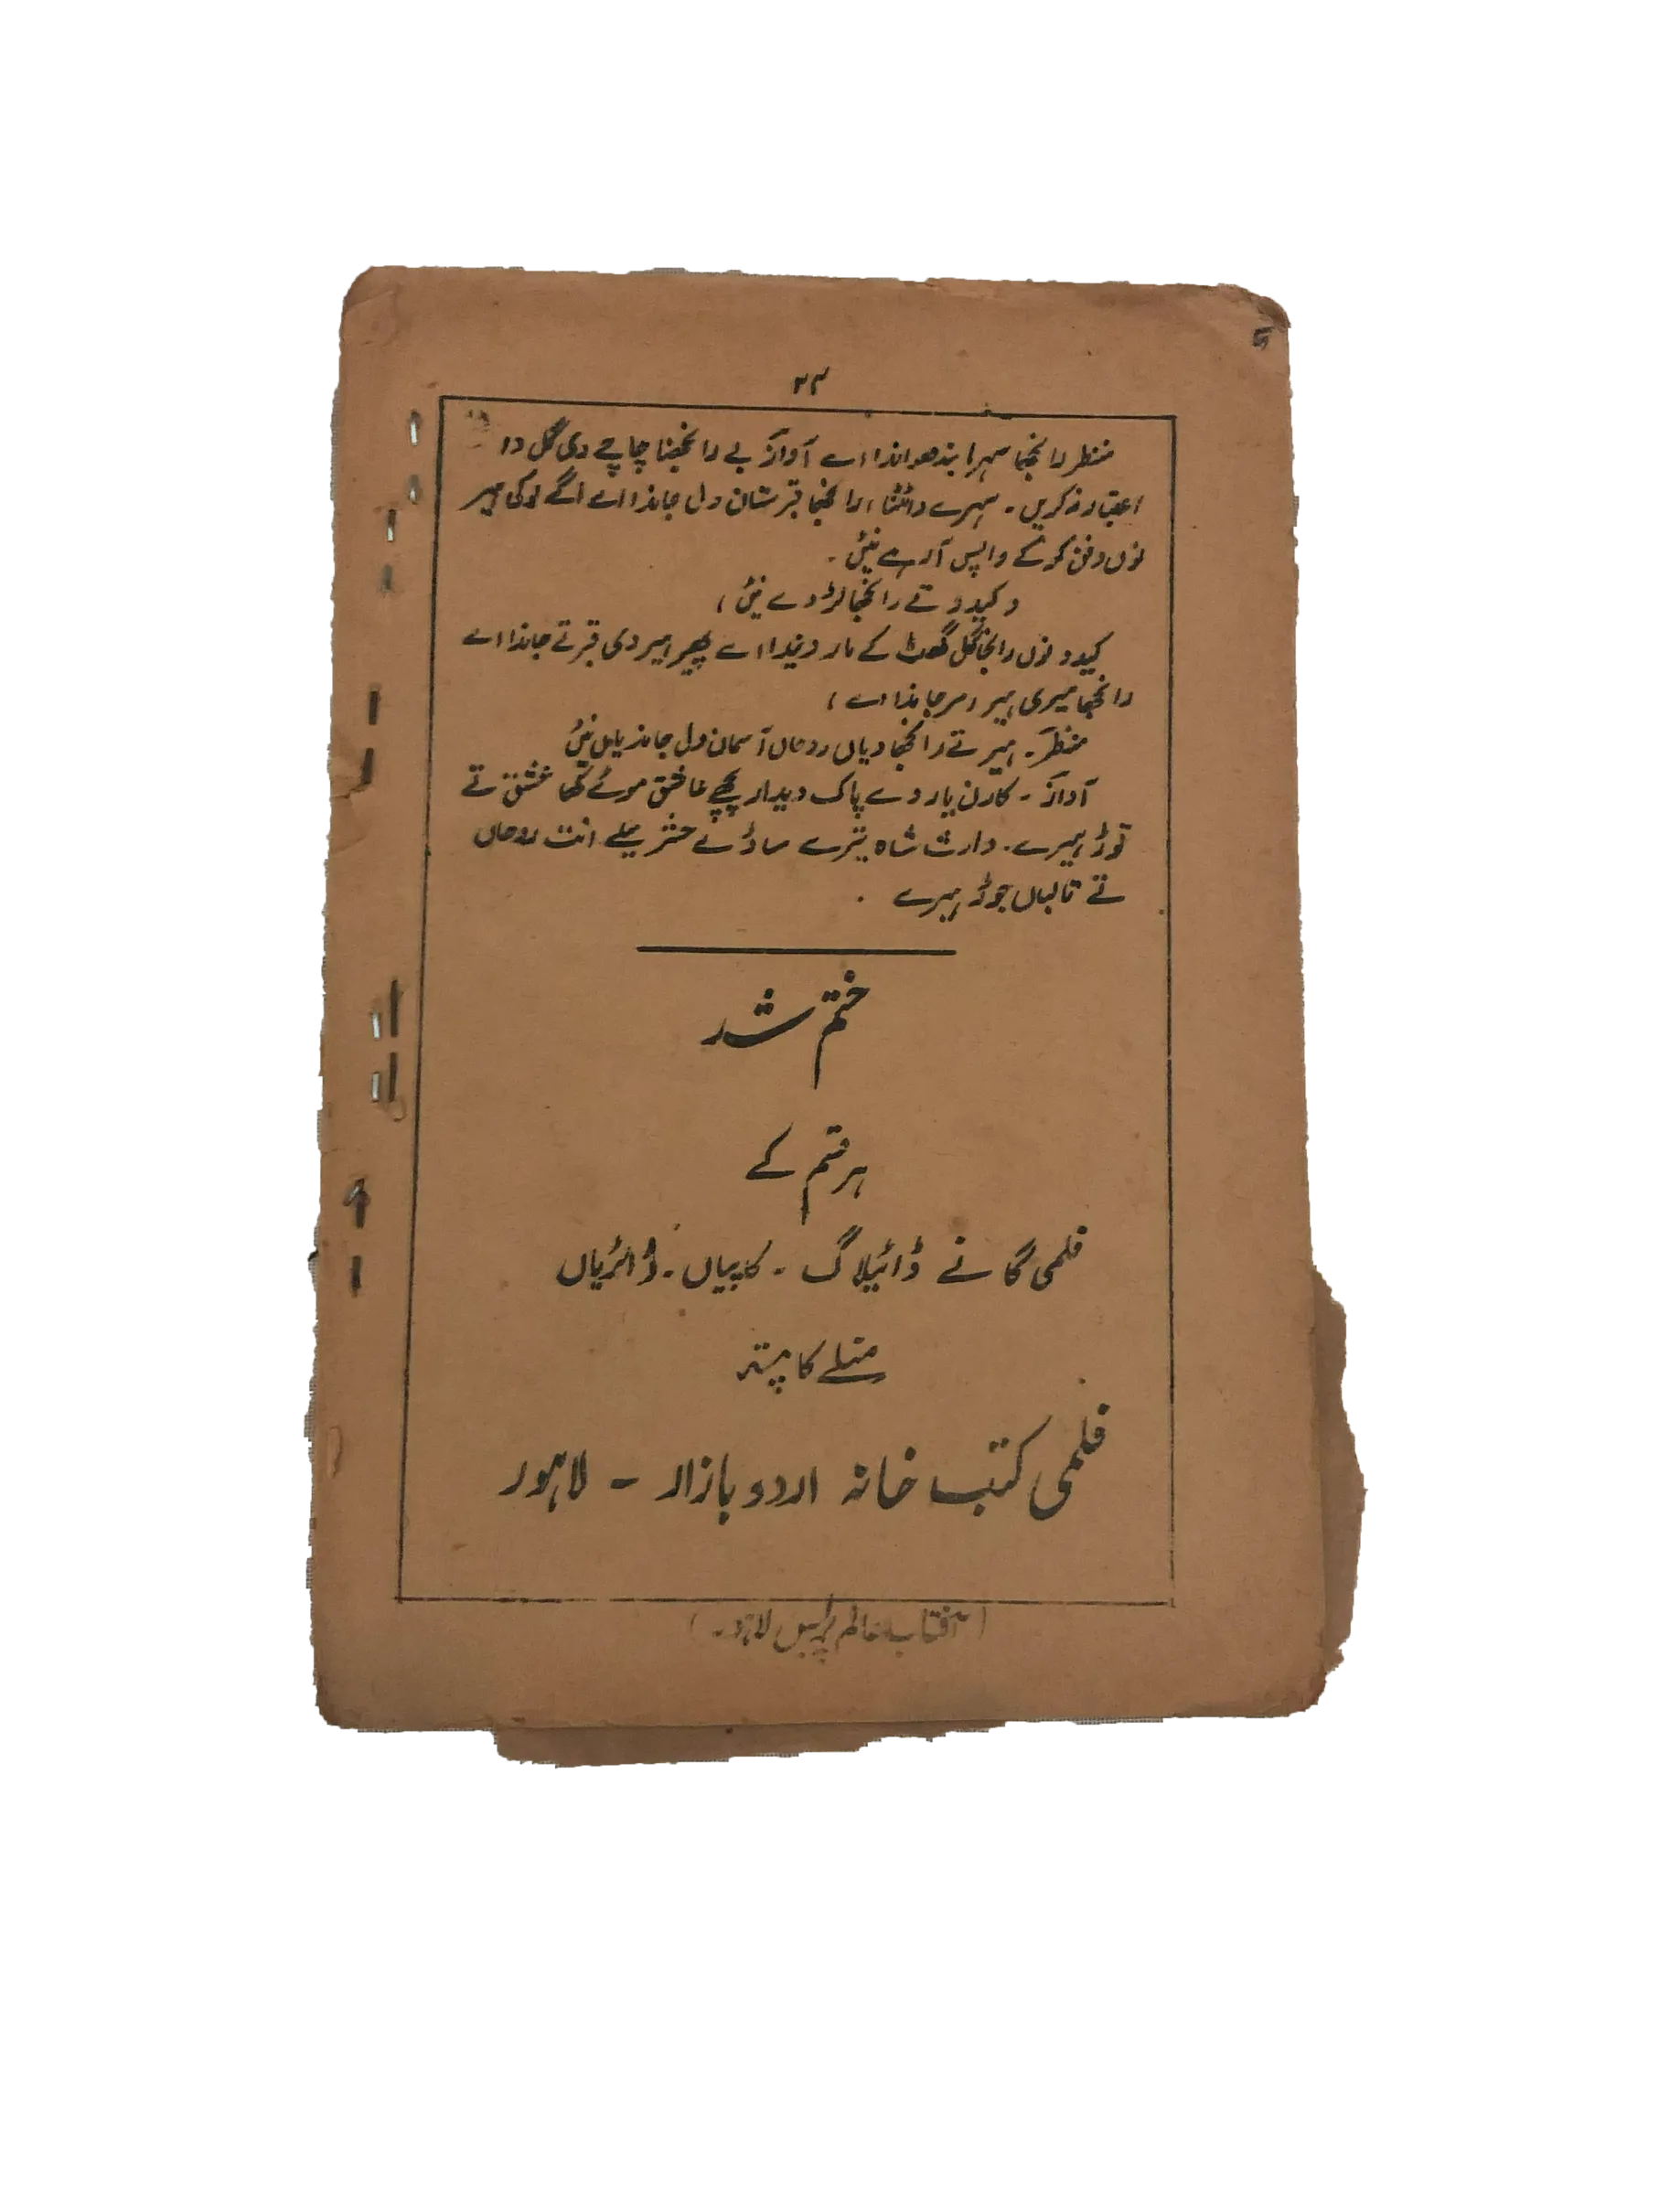 ۲۴
منظر رانجھا سہرا بندھواندا اے آواز بے رانجھنا چاچے دی گل دا
اعتبار نہ کریں ۔ سہرے دا ٹٹنا، رانجھا قبرستان ول جاندا اے اگے لوکی ہیر
نوں دفن کر کے واپس آرہے نیٔں ۔
د کیدو تے رانجھا لڑدے نیٔں )
کیدو نوں رانجھا گل گھٹ کے مار دیندا اے پھیر ہیر دی قبر تے جاندا اے
رانجھا میری ہیر (مر جاندا اے )
منظر ۔ ہیر تے رانجھا دیاں روحاں آسمان ول جاندیاں نیٔں
آواز ۔ کارن یار دے پاک دیدار پچھے عاشق موئے عشق تے
توڑ ہیرے ۔ وارث شاہ تیرے ساڈے حشر میلے انت روحاں
تے قالباں جوڑ ہیرے ۔
ختم شد
ہر قسم کے
فلمی گانے ڈائیلاگ ۔ کاپیاں ۔ ڈائریاں
ملنے کا پتہ
فلمی کتب خانہ اردو بازار - لاہور
(آفتاب عالم پریس لاہور۔)